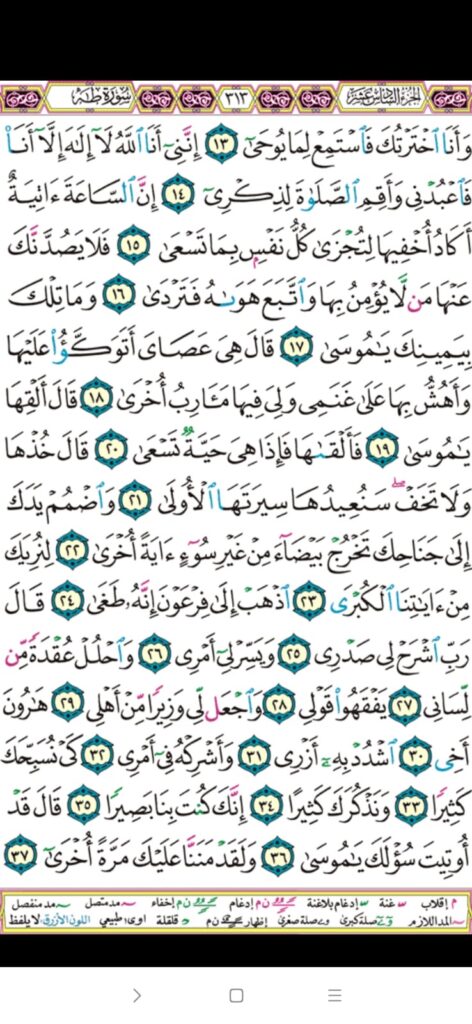 الجزء السادس عشر ٣١٣ سورة طه
وَأَنَا ٱخۡتَرۡتُكَ فَٱسۡتَمِعۡ لِمَا يُوحَىٰٓ ١٣ إِنَّنِيٓ أَنَا ٱللَّهُ لَآ إِلَٰهَ إِلَّآ أَنَا۠
فَٱعۡبُدۡنِي وَأَقِمِ ٱلصَّلَوٰةَ لِذِكۡرِيٓ ١٤ إِنَّ ٱلسَّاعَةَ ءَاتِيَةٌ
أَكَادُ أُخۡفِيهَا لِتُجۡزَىٰ كُلُّ نَفۡسِۭ بِمَا تَسۡعَىٰ ١٥ فَلَا يَصُدَّنَّكَ
عَنۡهَا مَن لَّا يُؤۡمِنُ بِهَا وَٱتَّبَعَ هَوَىٰهُ فَتَرۡدَىٰ ١٦ وَمَا تِلۡكَ
بِيَمِينِكَ يَٰمُوسَىٰ ١٧ قَالَ هِيَ عَصَايَ أَتَوَكَّؤُاْ عَلَيۡهَا
وَأَهُشُّ بِهَا عَلَىٰ غَنَمِي وَلِيَ فِيهَا مَـَٔارِبُ أُخۡرَىٰ ١٨ قَالَ أَلۡقِهَا
يَٰمُوسَىٰ ١٩ فَأَلۡقَىٰهَا فَإِذَا هِيَ حَيَّةٞ تَسۡعَىٰ ٢٠ قَالَ خُذۡهَا
وَلَا تَخَفۡۖ سَنُعِيدُهَا سِيرَتَهَا ٱلۡأُولَىٰ ٢١ وَٱضۡمُمۡ يَدَكَ
إِلَىٰ جَنَاحِكَ تَخۡرُجۡ بَيۡضَآءَ مِنۡ غَيۡرِ سُوٓءٍ ءَايَةً أُخۡرَىٰ ٢٢ لِنُرِيَكَ
مِنۡ ءَايَٰتِنَا ٱلۡكُبۡرَى ٢٣ ٱذۡهَبۡ إِلَىٰ فِرۡعَوۡنَ إِنَّهُۥ طَغَىٰ ٢٤ قَالَ
رَبِّ ٱشۡرَحۡ لِي صَدۡرِي ٢٥ وَيَسِّرۡ لِيٓ أَمۡرِي ٢٦ وَٱحۡلُلۡ عُقۡدَةٗ مِّن
لِّسَانِي ٢٧ يَفۡقَهُواْ قَوۡلِي ٢٨ وَٱجۡعَل لِّي وَزِيرٗا مِّنۡ أَهۡلِي ٢٩ هَٰرُونَ
أَخِي ٣٠ ٱشۡدُدۡ بِهِۦٓ أَزۡرِي ٣١ وَأَشۡرِكۡهُ فِيٓ أَمۡرِي ٣٢ كَيۡ نُسَبِّحَكَ
كَثِيرٗا ٣٣ وَنَذۡكُرَكَ كَثِيرًا ٣٤ إِنَّكَ كُنتَ بِنَا بَصِيرٗا ٣٥ قَالَ قَدۡ
أُوتِيتَ سُؤۡلَكَ يَٰمُوسَىٰ ٣٦ وَلَقَدۡ مَنَنَّا عَلَيۡكَ مَرَّةً أُخۡرَىٰٓ ٣٧
م إقلاب غنة إدغام بلاغنة ن م إدغام ن م إخفاء مد متصل مد منفصل
المد اللازم صلة كبرى صلة صغرى إظهار ن م قلقلة اوى طبيعي اللون الأزرق لا يلفظ